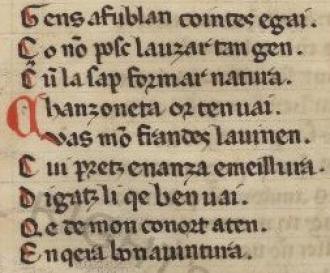 Gens afublan cointes e gai.
Co nō posc lauzar tan gen.
C̄ ū la sap formar natura.
Chanzoneta or ten uai.
Vas mō fiandes lauinen.
Cui pretz enanza e meillura.
Digatz li qe ben uai.
Qe de mon conort aten.
Enqera bonauintura.